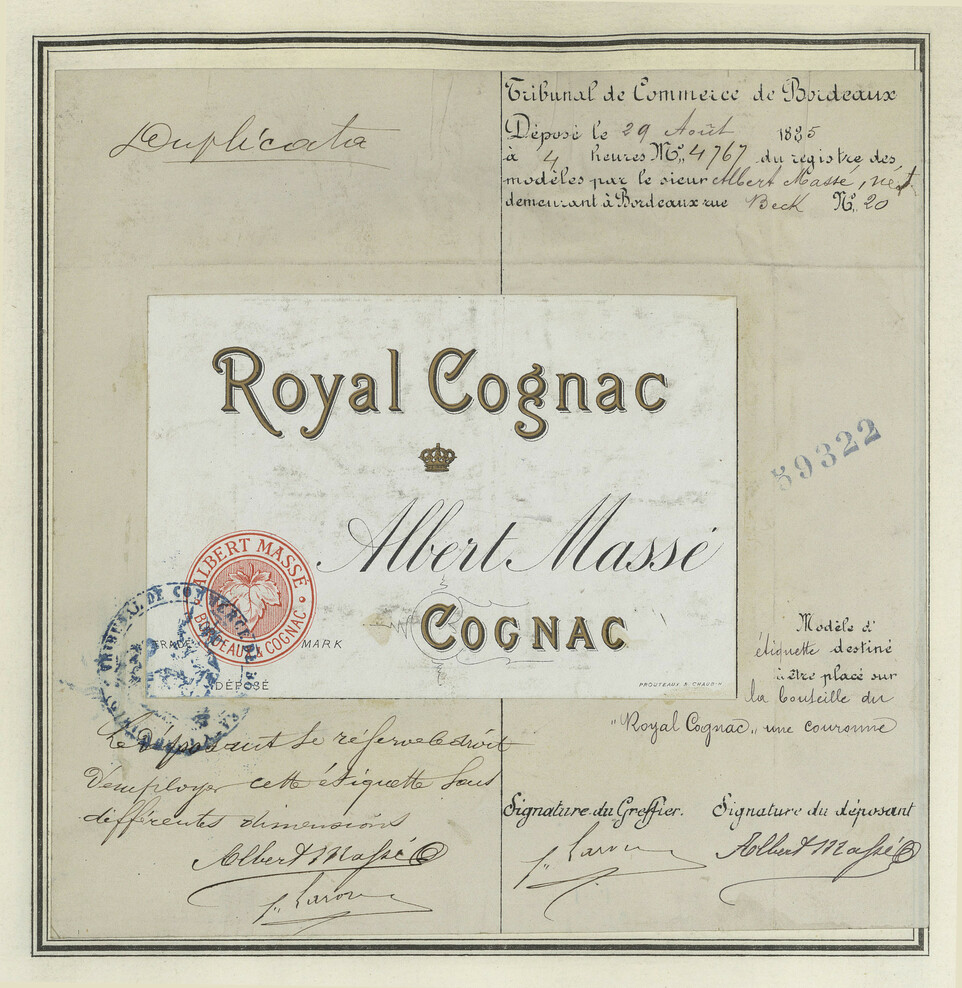 Duplicata
Tribunal de Commerce de Bordeaux
Déposé le 29 Août 1885
à 4 heures Nº 4767 du registre des
modèles par le sieur Albert Massé, négt
demeurant à Bordeaux rue Beck Nº 20
Royal Cognac
59322
Albert Massé
Cognac
ALBERT MASSÉ
BORDEAUX & COGNAC
TRADE MARK
DÉPOSÉ
PROUTEAUX & CHAUD
TRIBUNAL DE COMMERCE DE BO
Modèle d'
étiquette destiné
à être placé sur
la bouteille du
"Royal Cognac" une couronne
Le déposant se réserve le droit
d'employer cette étiquette sous
différentes dimensions
Albert Massé
Signature du Greffier.
Signature du déposant
Albert Massé